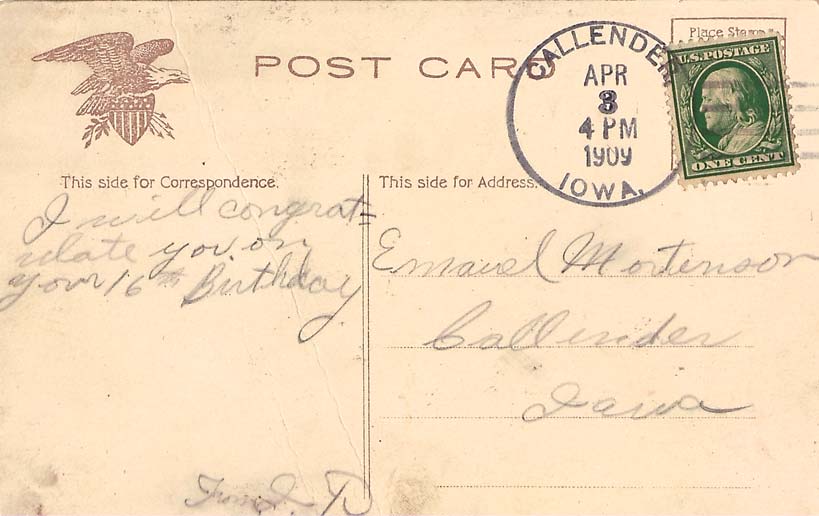 POST CARD
Place Stamp
CALLENDER
APR
3
4 PM
1909
IOWA.
U.S. POSTAGE
ONE CENT
This side for Correspondence.
I will congrat=
ulate you on
your 16th Birthday
From
This side for Address.
Mortenson
Callender
Iowa